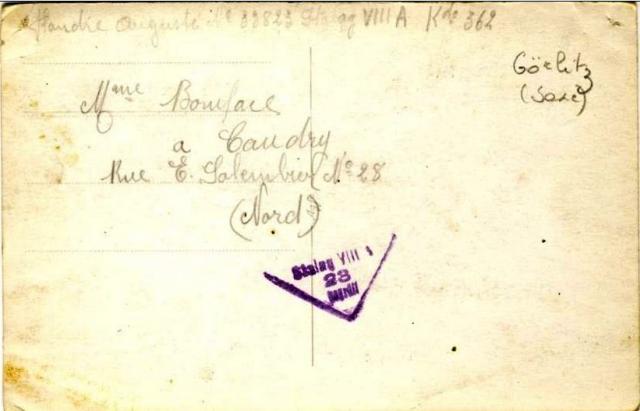 Auguste No 33823 Stalag VIII A Kdo 362
Görlitz
(Saxe)
Mme Boniface
a Caudry
Rue E. Salembier No 28
(Nord)
Stalag VIII A
23
geprüft